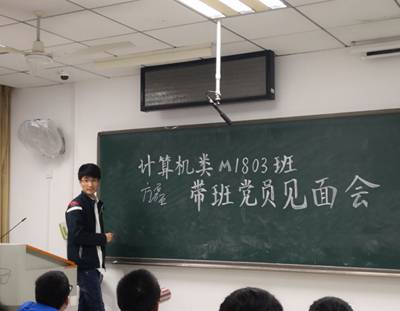 计算机类M1803班
带班党员见面会